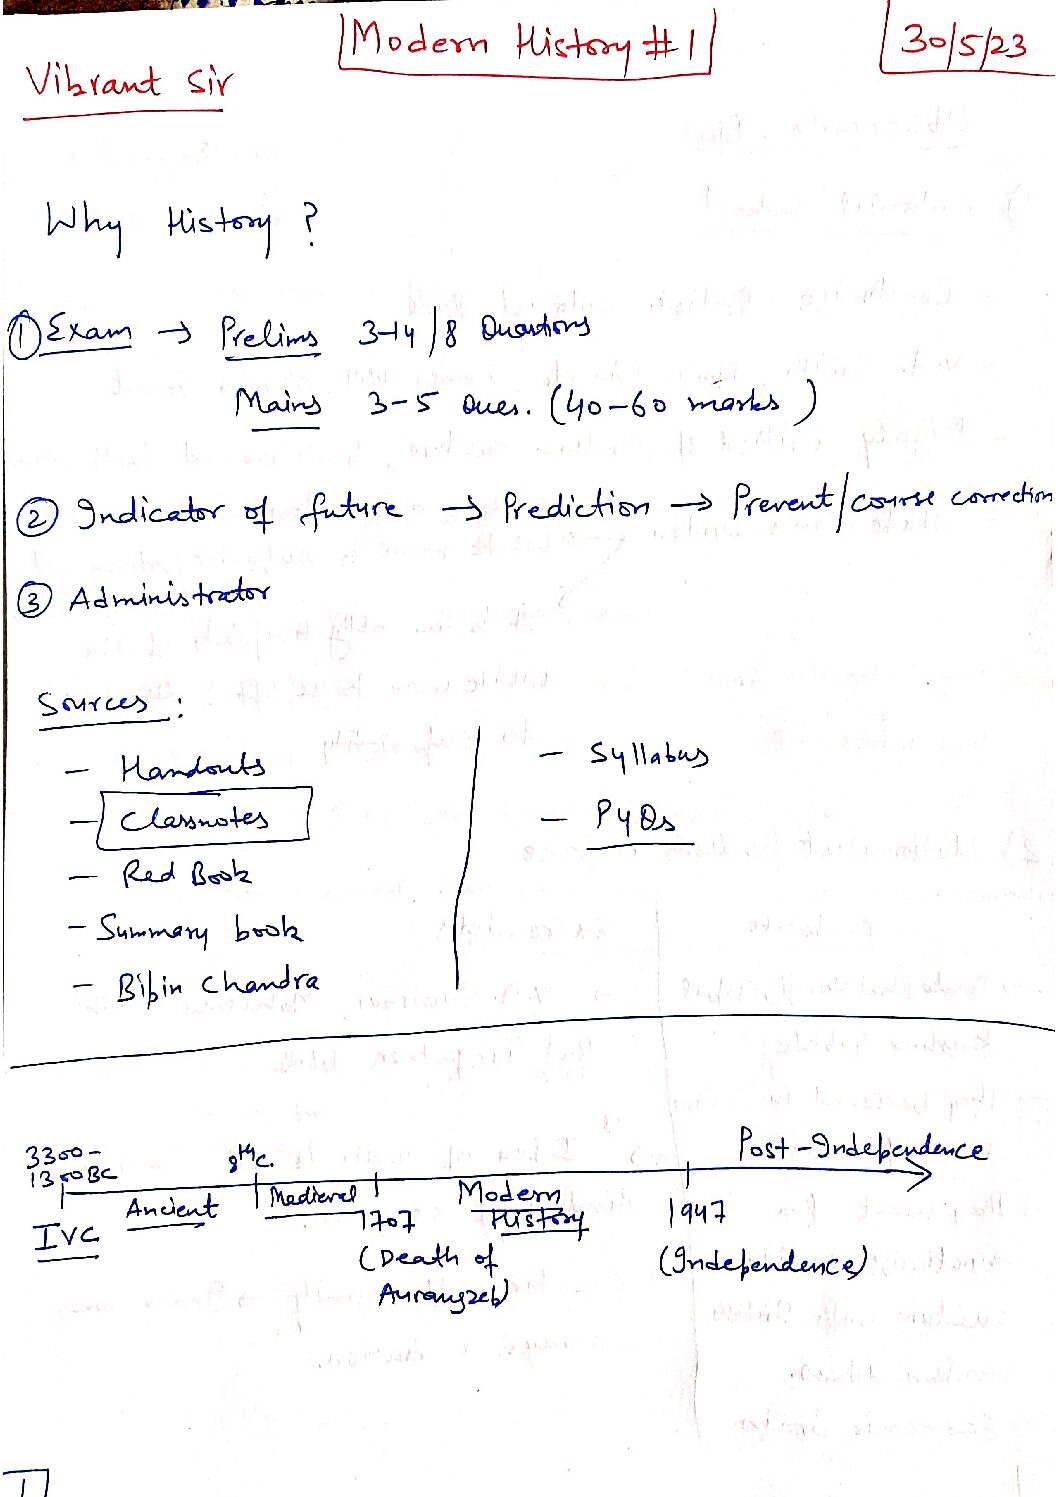 Modern History #1
30/5/23
Vibrant Sir
Why History ?
① Exam → Prelims 3-14/8 Questions
Mains 3-5 Ques. (40-60 marks)
② Indicator of future → Prediction → Prevent/course correction
③ Administrator
Sources :
- Handouts
- Classnotes
- Red Book
- Summary book
- Bipin Chandra
- Syllabus
- PYQs
3300-
1300BC
8th c.
Post-Independence
Ancient
Medieval
Modern
History
IVC
1707
1947
(Death of
Aurangzeb)
(Independence)
1